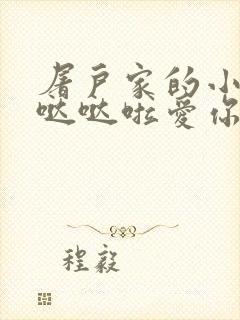 屠户家的小
哒哒啦爱你
程毅